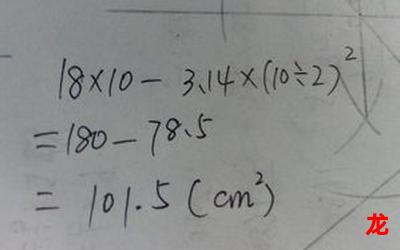 18×10-3.14×(10÷2)²
=180-78.5
=101.5(cm²)
龙